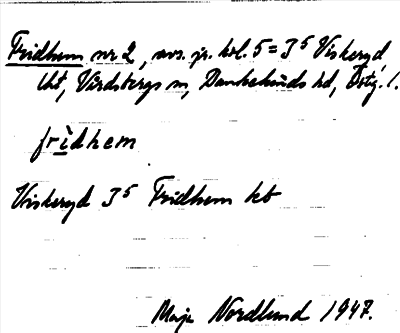 Fridhem nr 2, avs. jr. kol. 5 = 3⁵ Viskeryd
lht, Vårdsbergs sn, Bankekinds hd, Östg. l.
frìdhem
Viskeryd 3⁵ Fridhem lht
Maja Nordlund 1947.